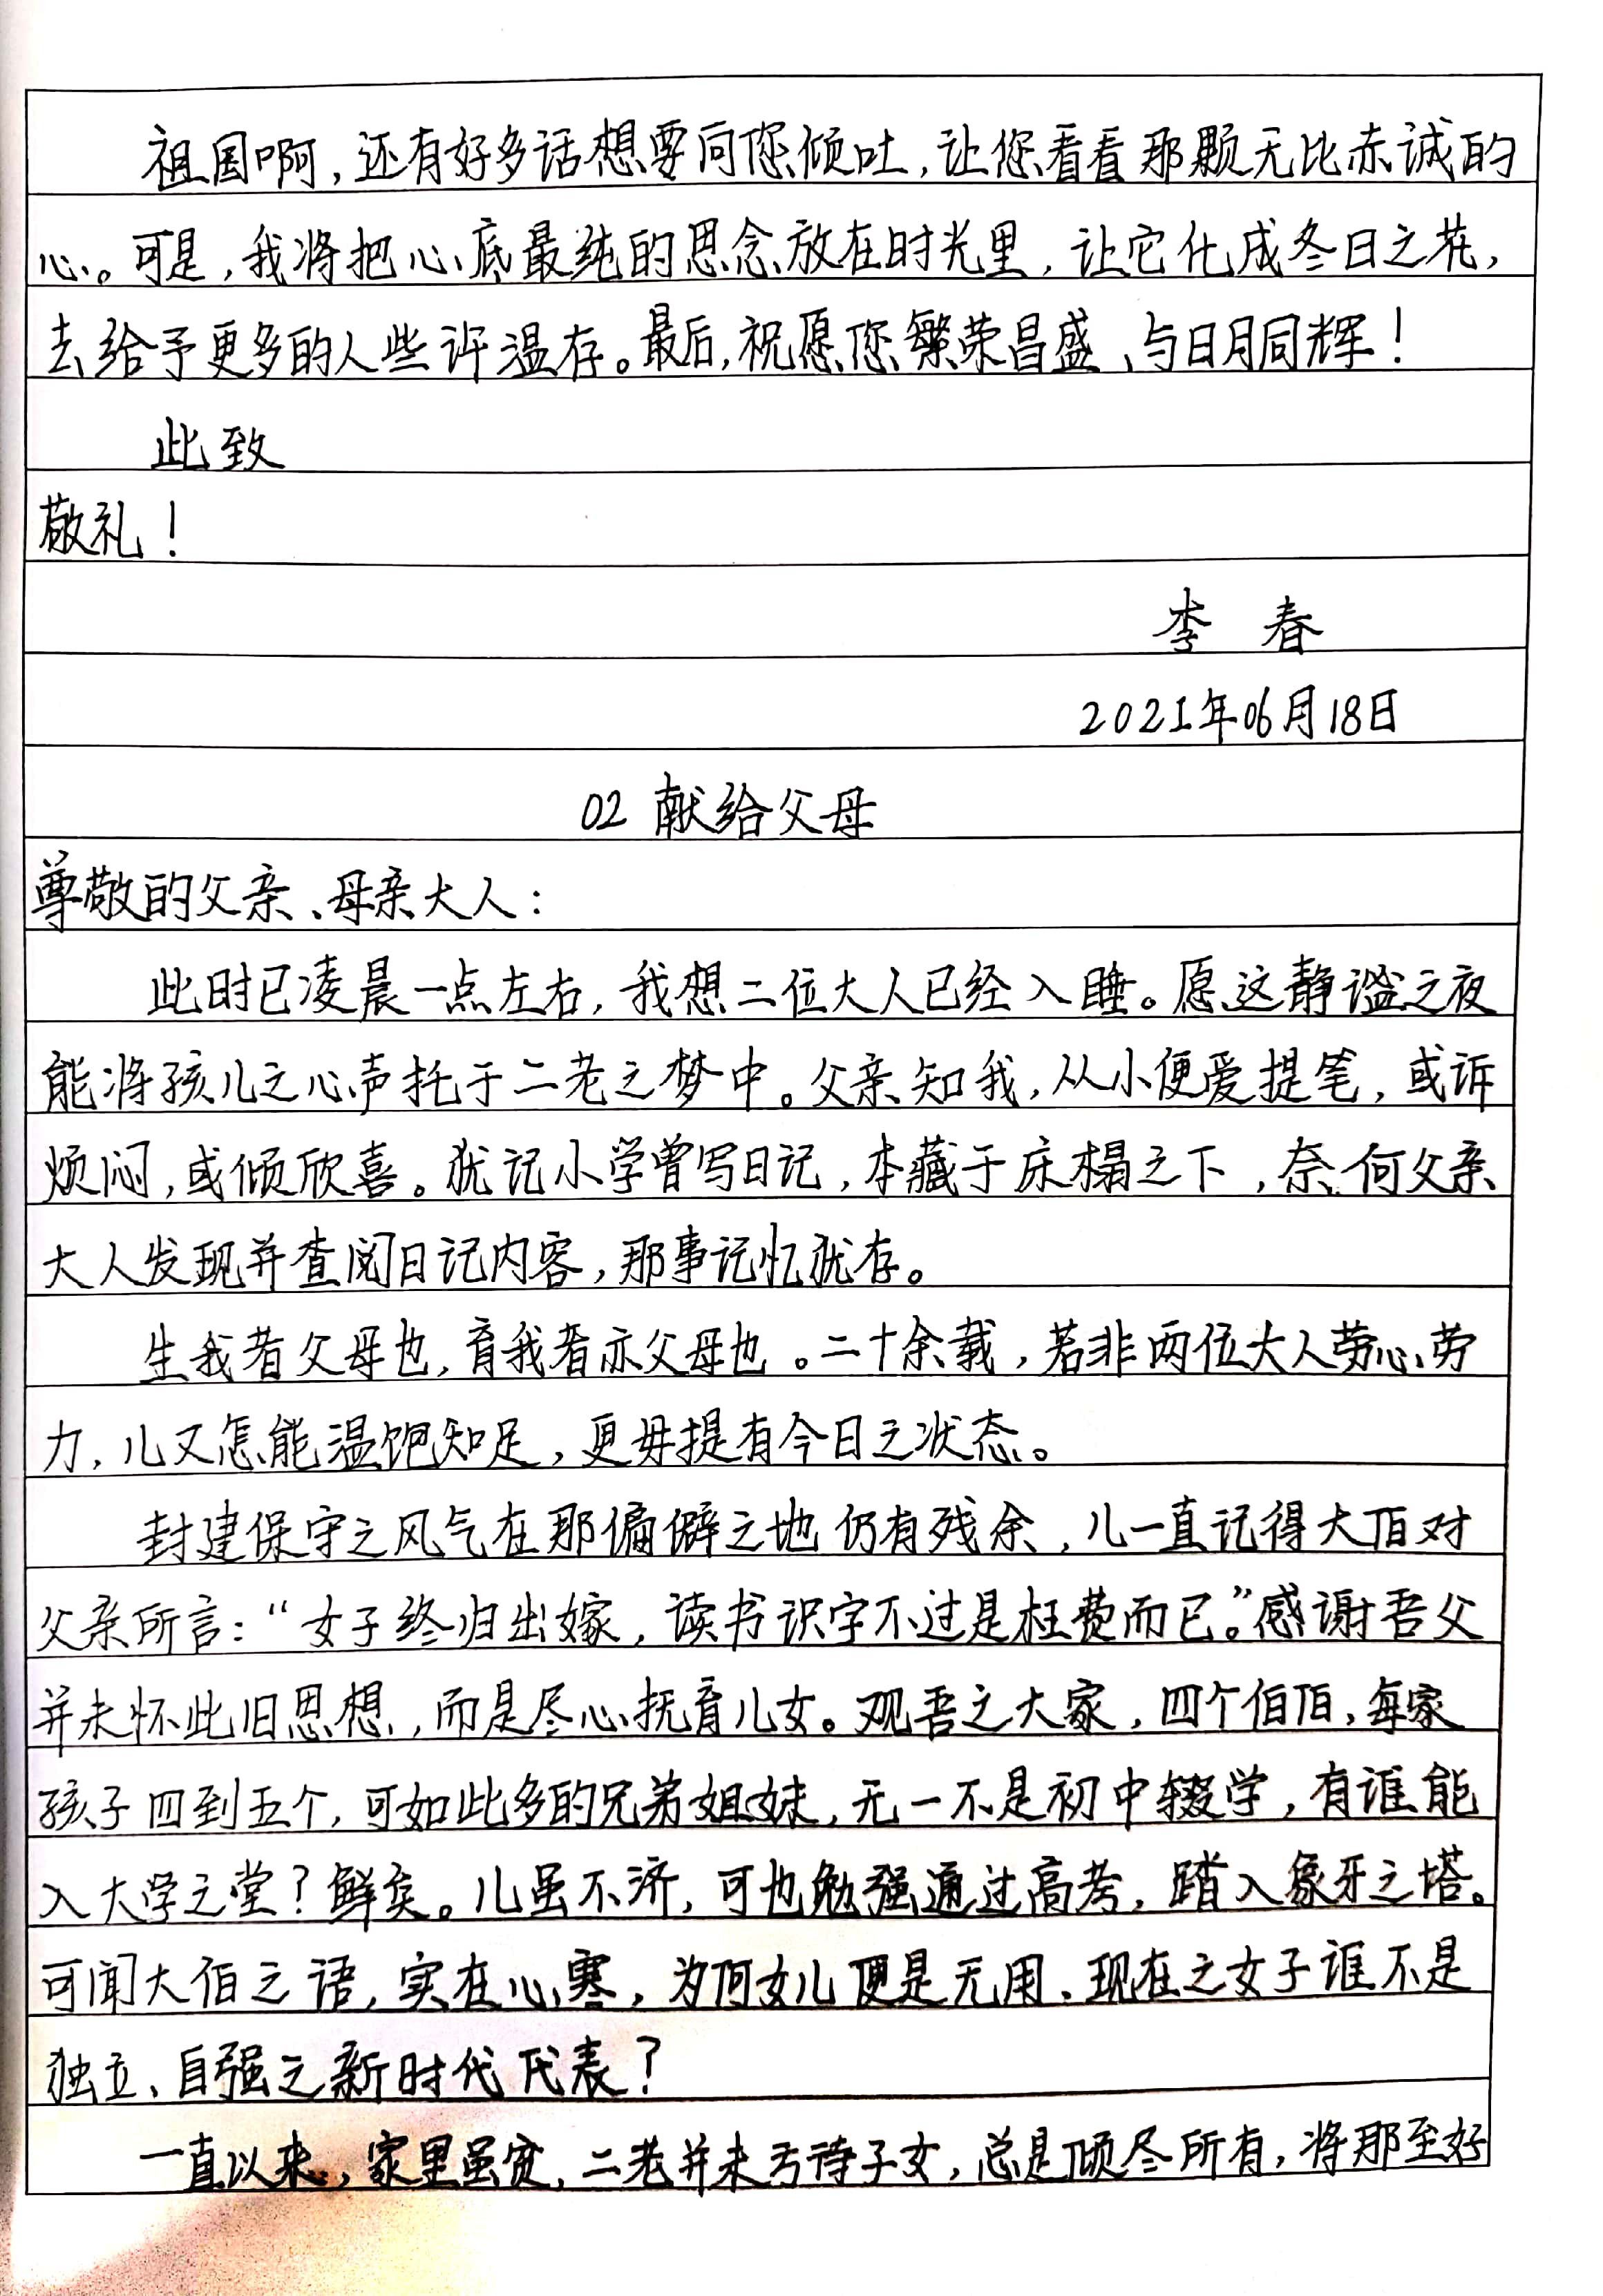 祖国啊，还有好多话想要向您倾吐，让您看看那颗无比赤诚的
心。可是，我将把心底最纯的思念放在时光里，让它化成冬日之花，
去给予更多的人些许温存。最后，祝愿您繁荣昌盛、与日月同辉！
此致
敬礼！
李 春
2021年06月18日
02 献给父母
尊敬的父亲、母亲大人：
此时已凌晨一点左右，我想二位大人已经入睡。愿这静谧之夜
能将孩儿之心声托于二老之梦中。父亲知我，从小便爱提笔，或诉
烦闷，或倾欣喜。犹记小学曾写日记，本藏于床榻之下，奈何父亲
大人发现并查阅日记内容，那事记忆犹存。
生我者父母也，育我者亦父母也。二十余载，若非两位大人劳心劳
力，儿又怎能温饱知足，更毋提有今日之状态。
封建保守之风气在那偏僻之地仍有残余，儿一直记得大伯对
父亲所言：“女子终归出嫁，读书识字不过是枉费而已。”感谢吾父
并未怀此旧思想，而是尽心抚育儿女。观吾之大家，四个伯伯，每家
孩子四到五个，可如此多的兄弟姐妹，无一不是初中辍学，有谁能
入大学之堂？鲜矣。儿虽不济，可也勉强通过高考，踏入象牙之塔。
可闻大伯之语，实在心寒，为何女儿便是无用、现在之女子谁不是
独立、自强之新时代代表？
一直以来，家里虽贫，二老并未亏待子女，总是倾尽所有，将那至好